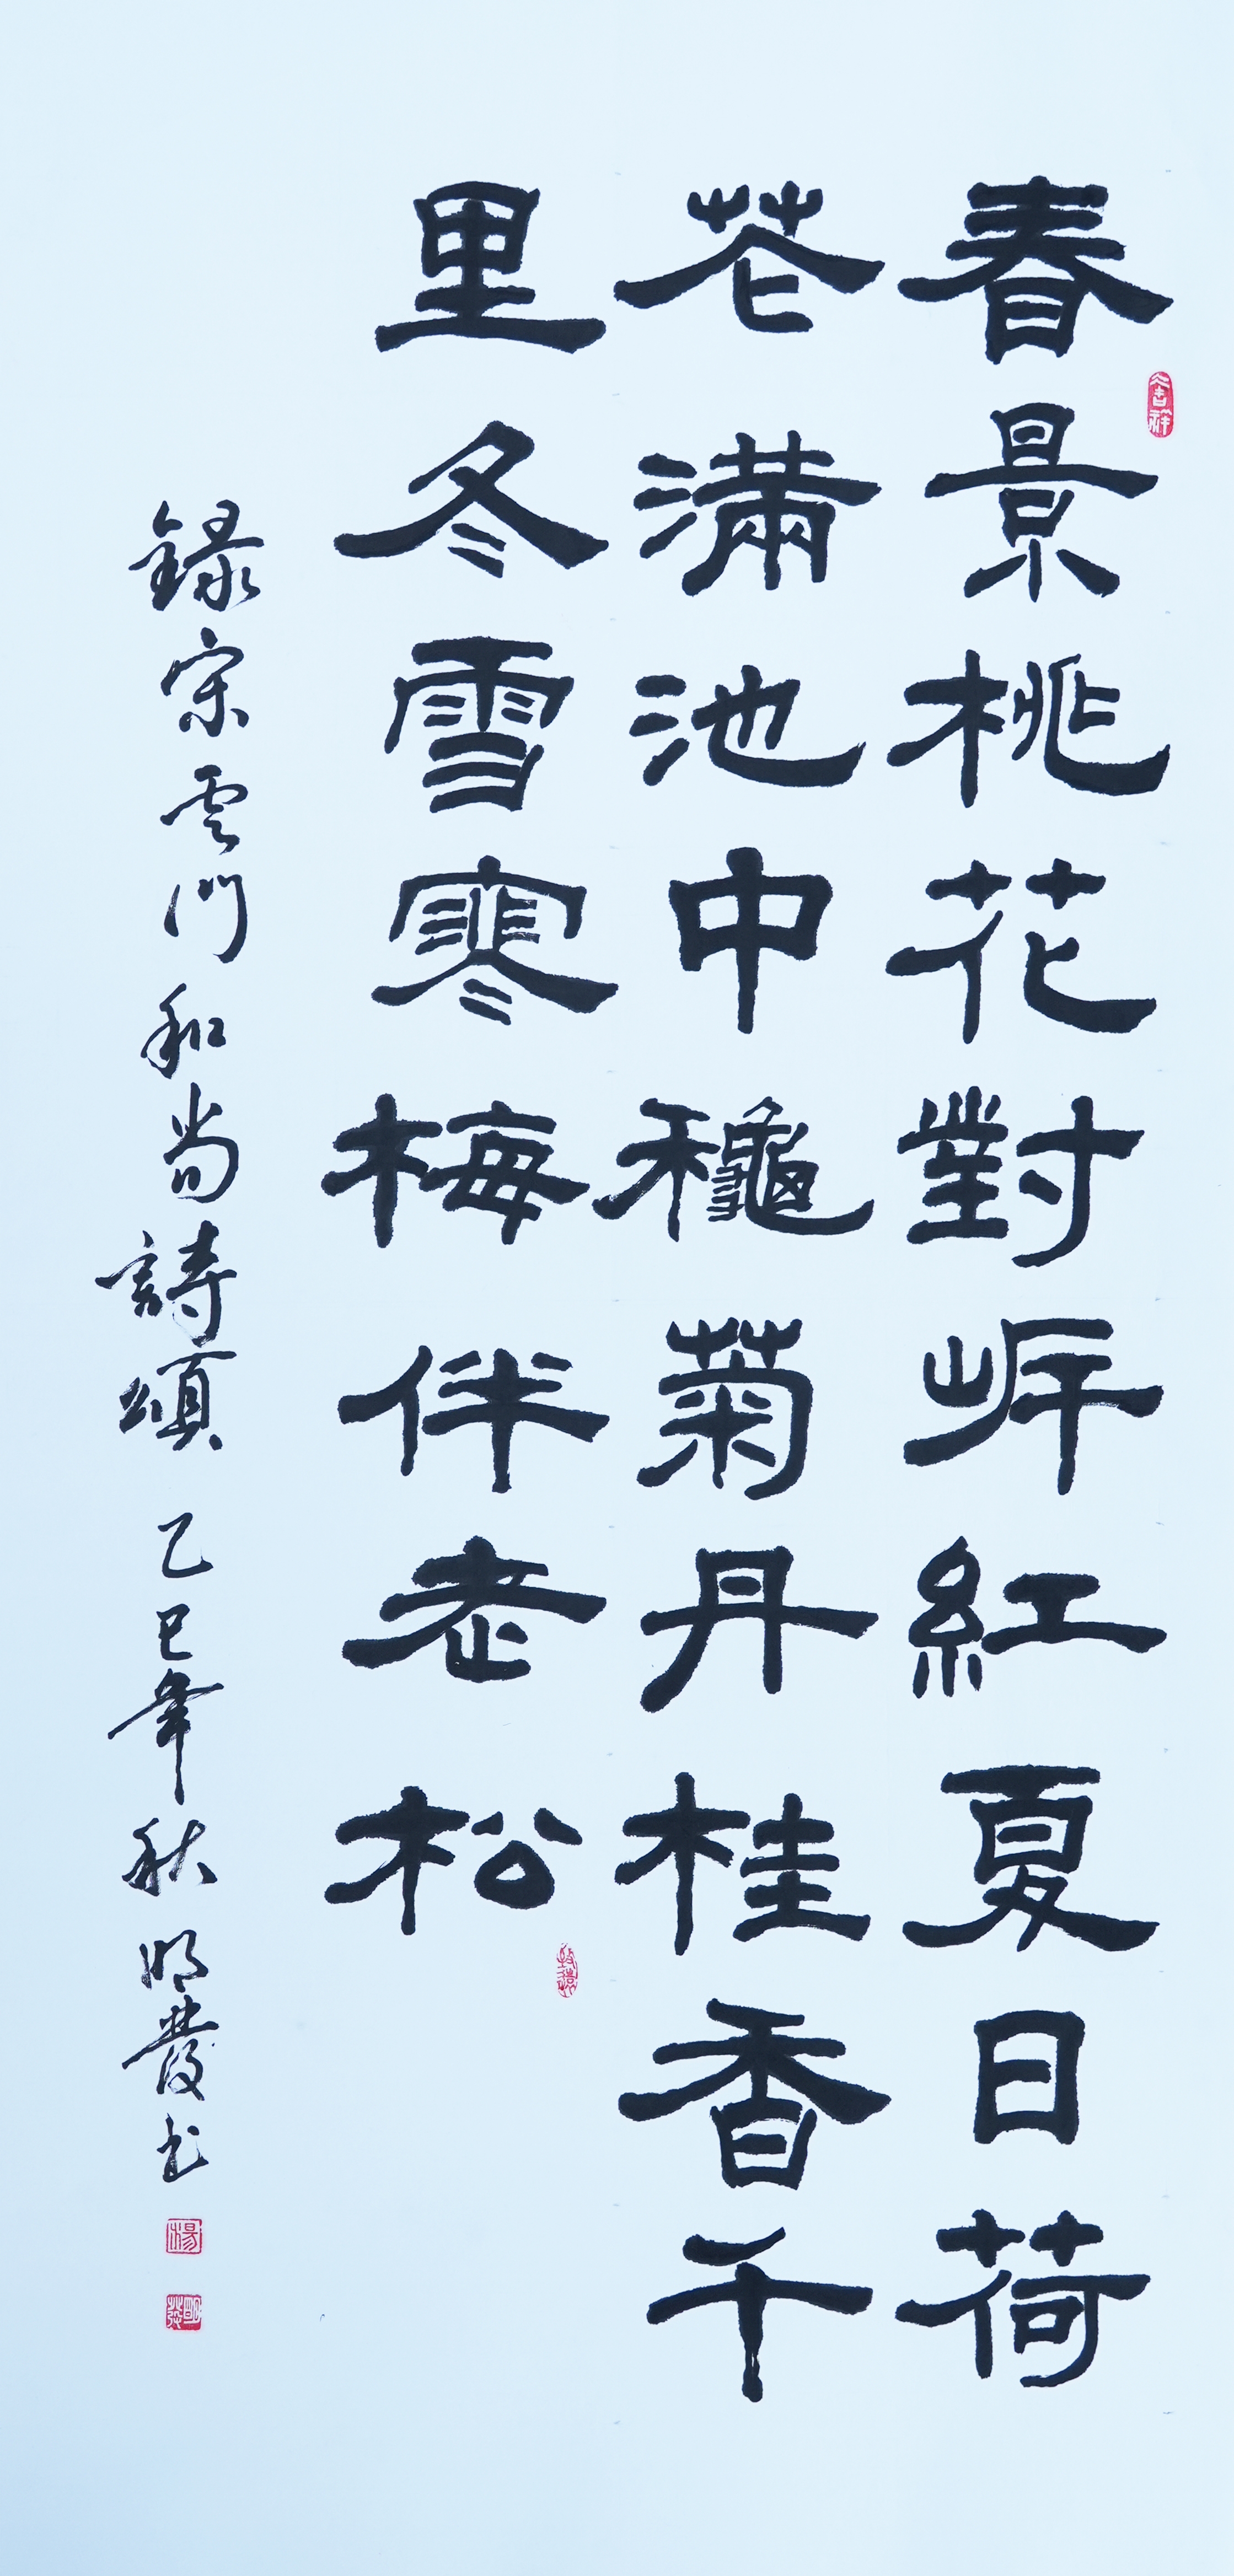 春景桃花對岸紅夏日荷
花滿池中龝菊丹桂香千
里冬雪寒梅伴老松
錄宋雲門和尚詩頌 乙巳年秋 明發书
吉祥
楊
明發